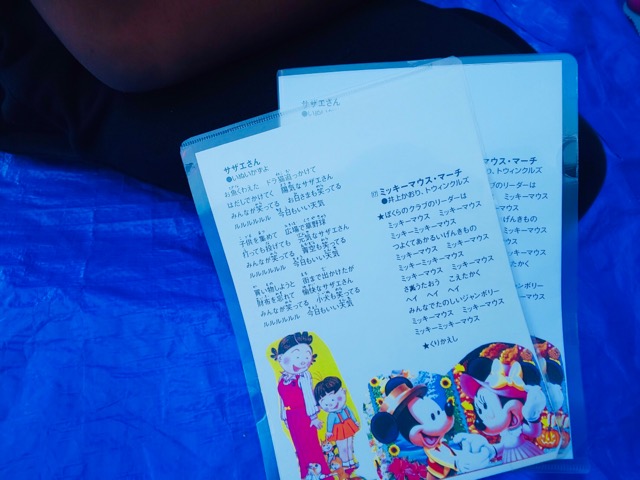 サザエさん
●いぬいかずよ
お魚くわえた ドラ猫追っかけて
はだしでかけてく 陽気なサザエさん
みんなが笑ってる お日さまも笑ってる
ルルルルルル 今日もいい天気
子供を集めて 広場で草野球
打っても投げても 元気なサザエさん
みんなが笑ってる 青空も笑ってる
ルルルルルル 今日もいい天気
買い物しようと 街まで出かけたが
財布を忘れて 愉快なサザエさん
みんなが笑ってる 小犬も笑ってる
ルルルルルル 今日もいい天気
ミッキーマウス・マーチ
●井上かおり、トウィンクルズ
★ぼくらのクラブのリーダーは
ミッキーマウス ミッキーマウス
ミッキーミッキーマウス
つよくてあかるいげんきもの
ミッキーマウス ミッキーマウス
ミッキーミッキーマウス
ミッキーマウス ミッキーマウス
さあうたおう こえたかく
ヘイ ヘイ ヘイ
みんなでたのしいジャンボリー
ミッキーマウス ミッキーマウス
ミッキーミッキーマウス
★くりかえし
サザエさん
マウス・マーチ
トウィンクルズ
リーダーは
ミッキーマウス
げんきもの
ミッキーマウス
たかく
ンボリー
マウス